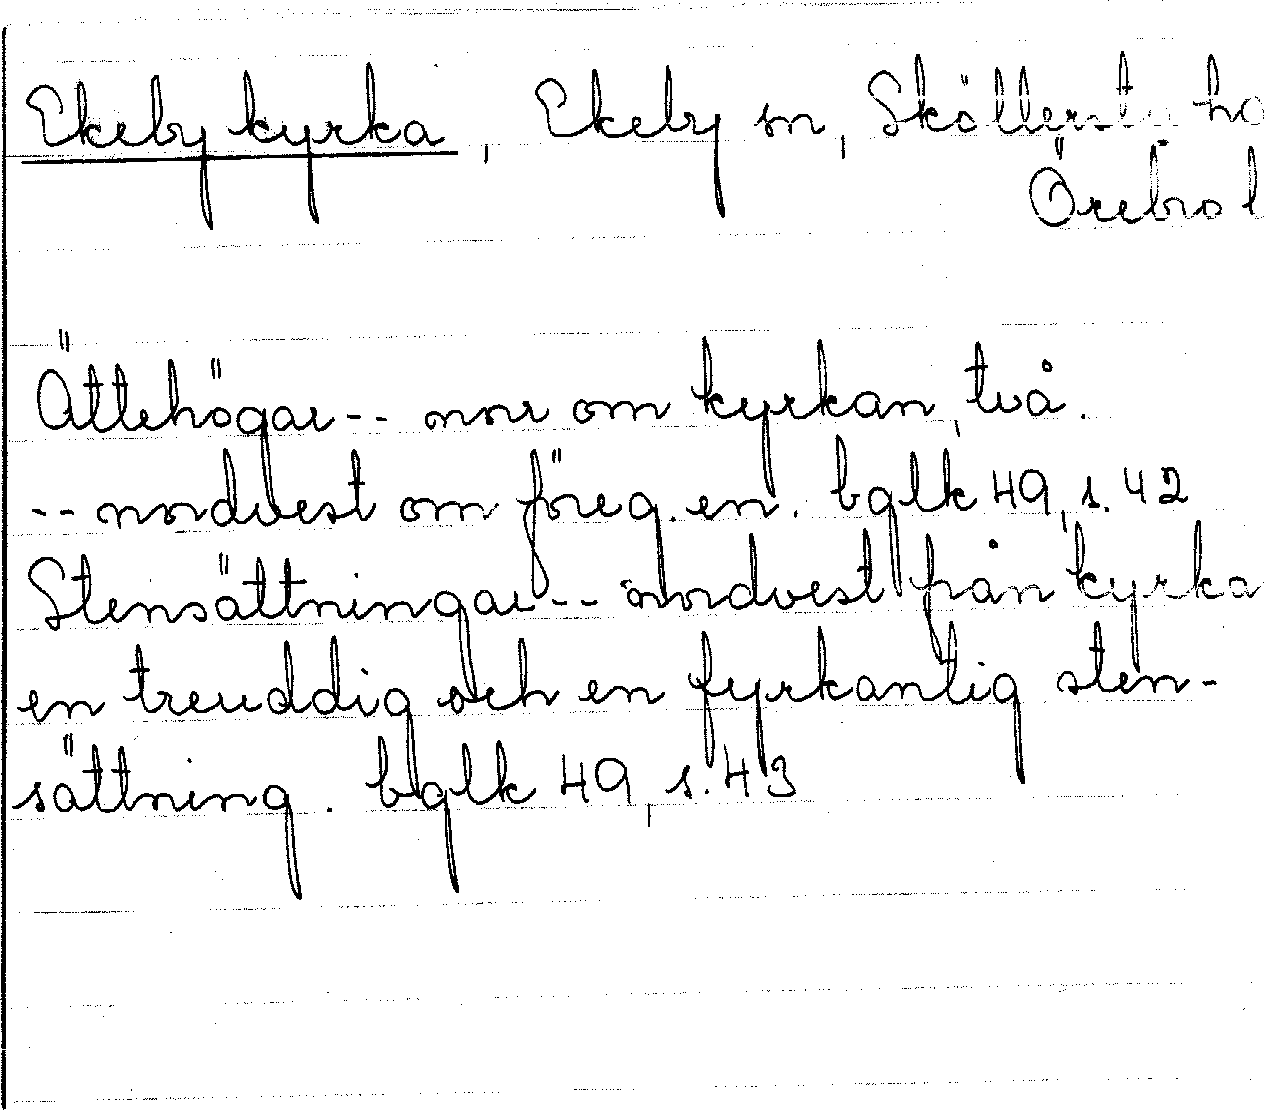 Ekeby kyrka, Ekeby sn, Sköllersta ha
Örebro l
Ättehögar -- norr om kyrkan, två.
-- nordvest om föreg. en. bglk 49, s. 42
Stensättningar -- nordvest från kyrka
en treuddig och en fyrkantig sten-
sättning. bglk 49, s. 43